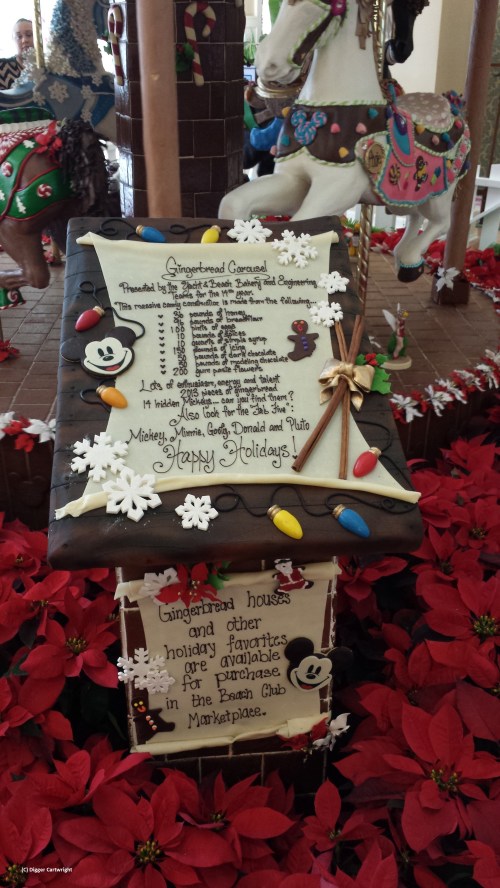 Gingerbread Carousel
Presented by the Yacht & Beach Bakery and Engineering
teams for the 14th year.
"This massive candy construction is made from the following...
36 pounds of honey
pounds of bread flour
100 pints of eggs
10 pounds of spices
quarts of simple syrup
150 pounds of icing
pounds of dark chocolate
pounds of modeling chocolate
200 gum paste flowers
Lots of enthusiasm, energy and talent
2015 pieces of gingerbread
14 hidden Mickeys... can you find them?
Also look for the "Fab Five":
Mickey, Minnie, Goofy, Donald and Pluto
Happy Holidays!
Gingerbread houses
and other
holiday favorites
are available
for purchase
in the Beach Club
Marketplace.
(C) Digger Cartwright